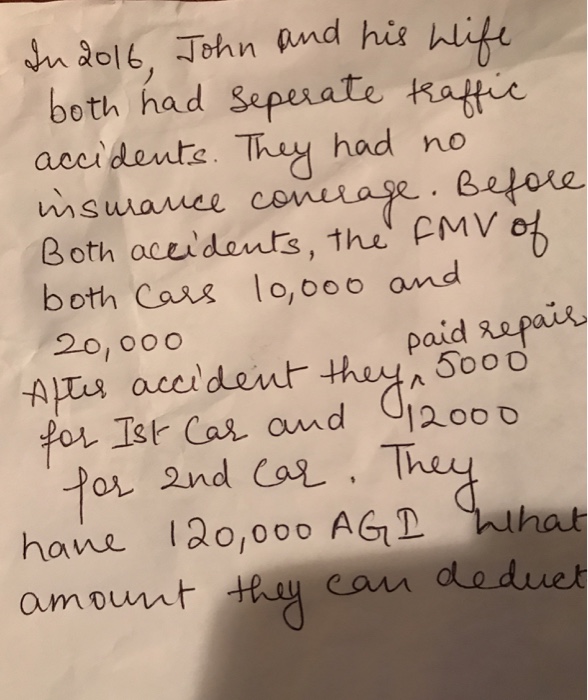 In 2016, John and his Wife
both had Seperate traffic
accidents. They had no
insurance coverage. Before
Both accidents, the FMV of
both Cars 10,000 and
20,000
After accident they ^ paid repairs 5000
for Ist Car and 12000
for 2nd Car. They
have 120,000 AGI What
amount they can deduct